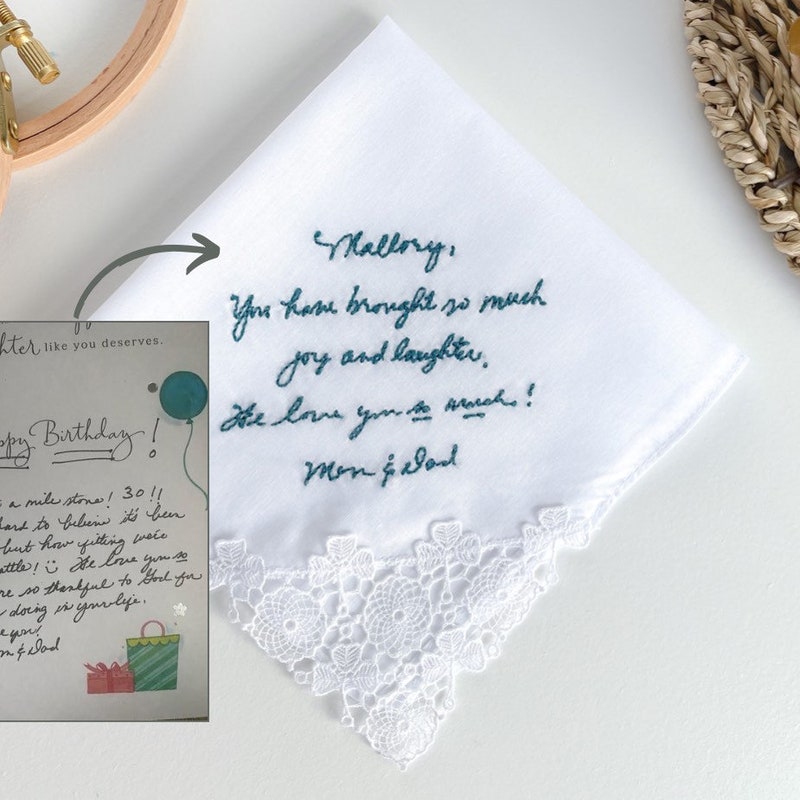 Mallory,
You have brought so much
joy and laughter.
We love you so much!
Mom & Dad
hter like you deserves.
ppy Birthday!
a mile stone! 30!!
hard to believe it's been
but how fitting we're
attle! We love you so
re so thankful to God for
doing in your life.
e you!
m & Dad